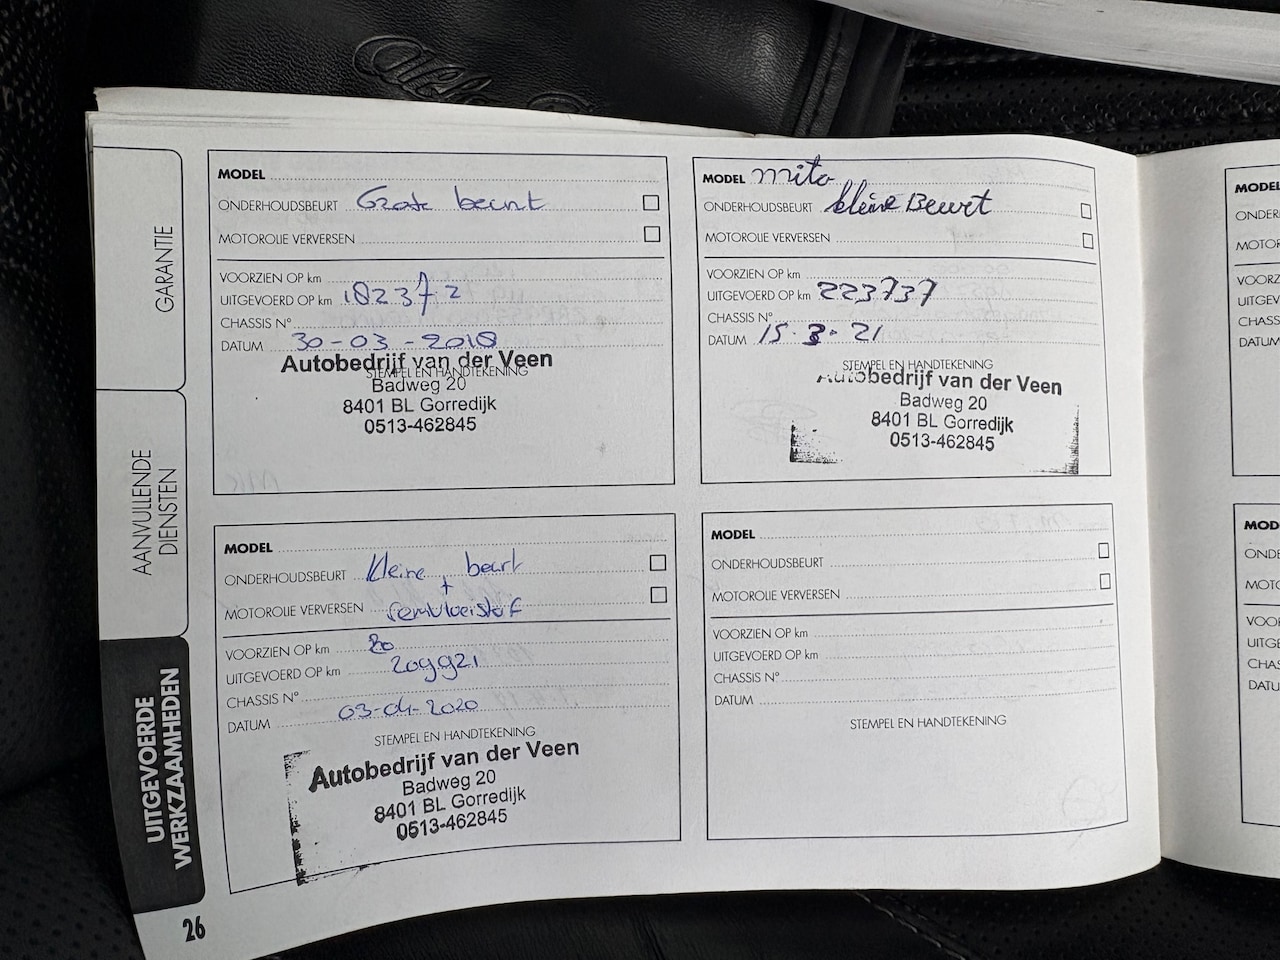 GARANTIE
AANVULLENDE
DIENSTEN
UITGEVOERDE
WERKZAAMHEDEN
26
MODEL
ONDERHOUDSBEURT Grote beurt
MOTOROLIE VERVERSEN
VOORZIEN OP km
UITGEVOERD OP km 182372
CHASSIS N°
DATUM 30-03-2018
Autobedrijf van der Veen
STEMPEL EN HANDTEKENING
Badweg 20
8401 BL Gorredijk
0513-462845
MODEL
ONDERHOUDSBEURT kleine beurt
+
MOTOROLIE VERVERSEN remvloeistof
VOORZIEN OP km
UITGEVOERD OP km 209921
CHASSIS N°
DATUM 03-04-2020
STEMPEL EN HANDTEKENING
Autobedrijf van der Veen
Badweg 20
8401 BL Gorredijk
0513-462845
MODEL mito
ONDERHOUDSBEURT kleine Beurt
MOTOROLIE VERVERSEN
VOORZIEN OP km
UITGEVOERD OP km 223737
CHASSIS N°
DATUM 15-3-21
STEMPEL EN HANDTEKENING
Autobedrijf van der Veen
Badweg 20
8401 BL Gorredijk
0513-462845
MODEL
ONDERHOUDSBEURT
MOTOROLIE VERVERSEN
VOORZIEN OP km
UITGEVOERD OP km
CHASSIS N°
DATUM
STEMPEL EN HANDTEKENING
MODEL
CHASS
DATUM